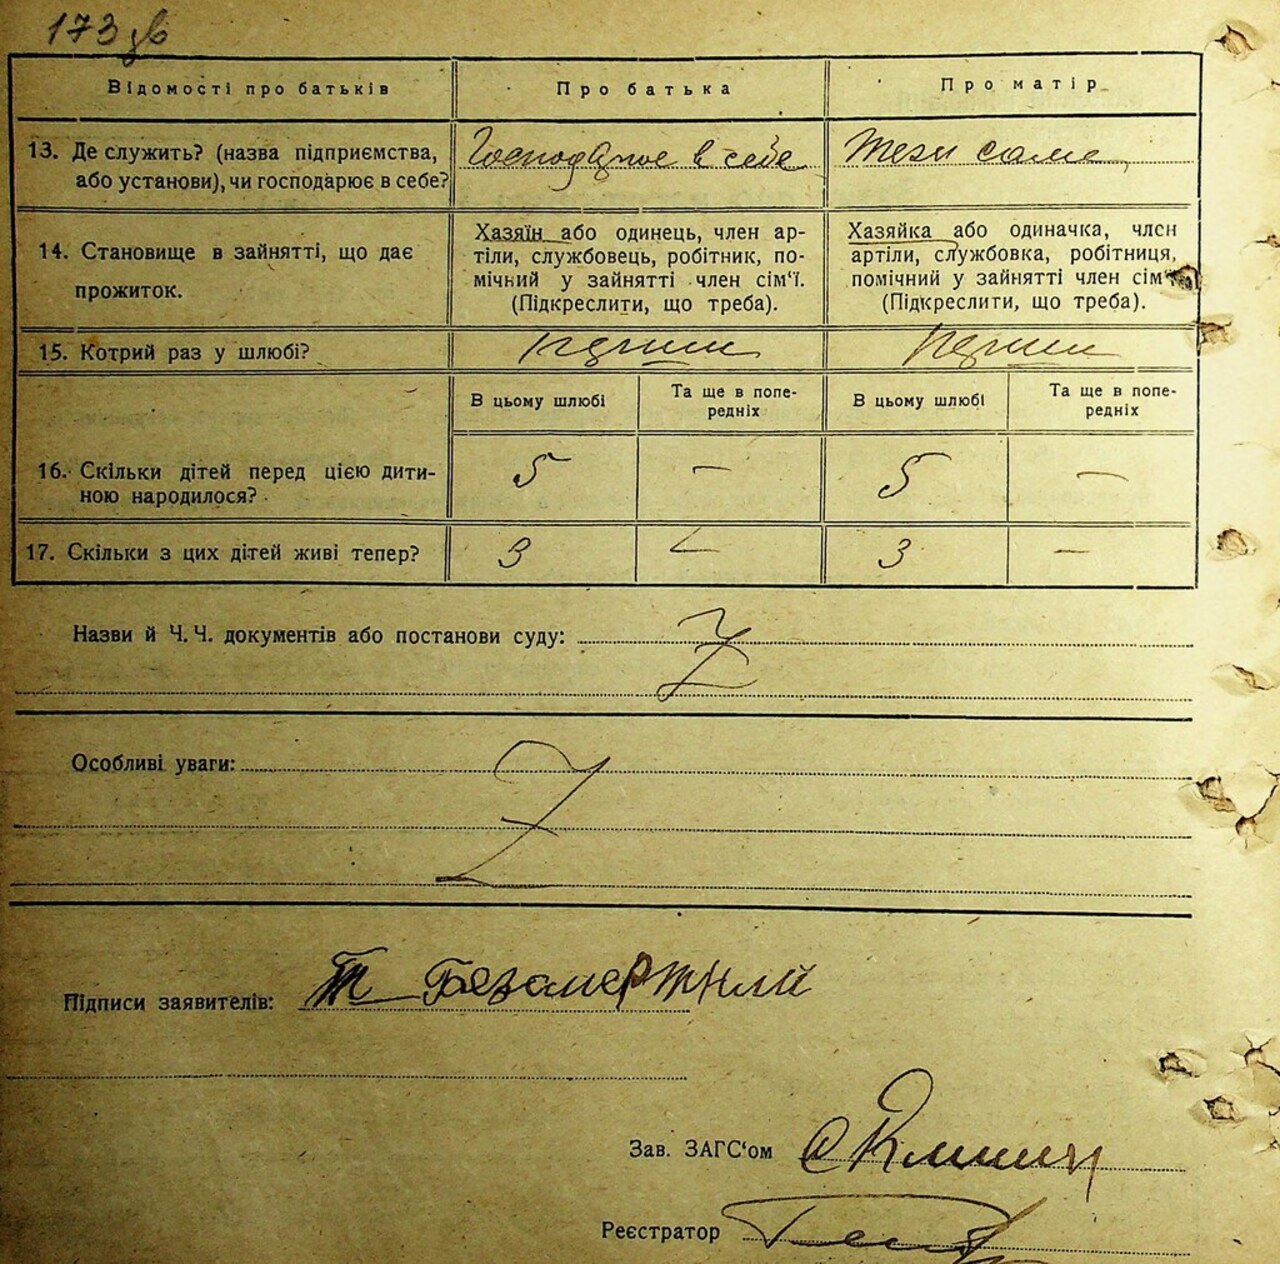 173 зв
Відомості про батьків Про батька Про матір
13. Де служить? (назва підприємства, або установи), чи господарює в себе?
Господарює в себе
теж саме
14. Становище в зайнятті, що дає прожиток.
Хазяїн або одинець, член ар-
тіли, службовець, робітник, по-
мічний у зайнятті член сім'ї.
(Підкреслити, що треба).
Хазяйка або одиначка, член
артіли, службовка, робітниця,
помічний у зайнятті член сім'ї
(Підкреслити, що треба).
15. Котрий раз у шлюбі?
перший перший
В цьому шлюбі Та ще в попе-
редніх В цьому шлюбі Та ще в попе-
редніх
16. Скільки дітей перед цією дити-
ною народилося?
5 — 5 —
17. Скільки з цих дітей живі тепер? 3 — 3 —
Назви й Ч. Ч. документів або постанови суду: Z
Особливі уваги: Z
Підписи заявителів:
Зав. ЗАГС'ом
Реєстратор